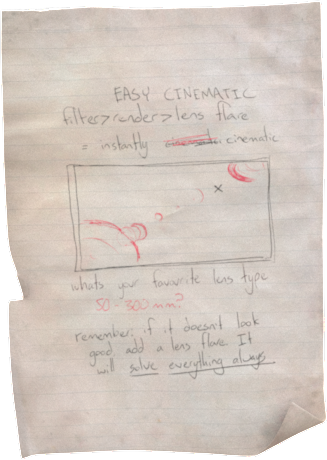 EASY CINEMATIC
filter>render>lens flare
= instantly cinematic
x
whats your favourite lens type
50-300 mm?
remember: if it doesn't look
good, add a lens flare. It
will solve everything always